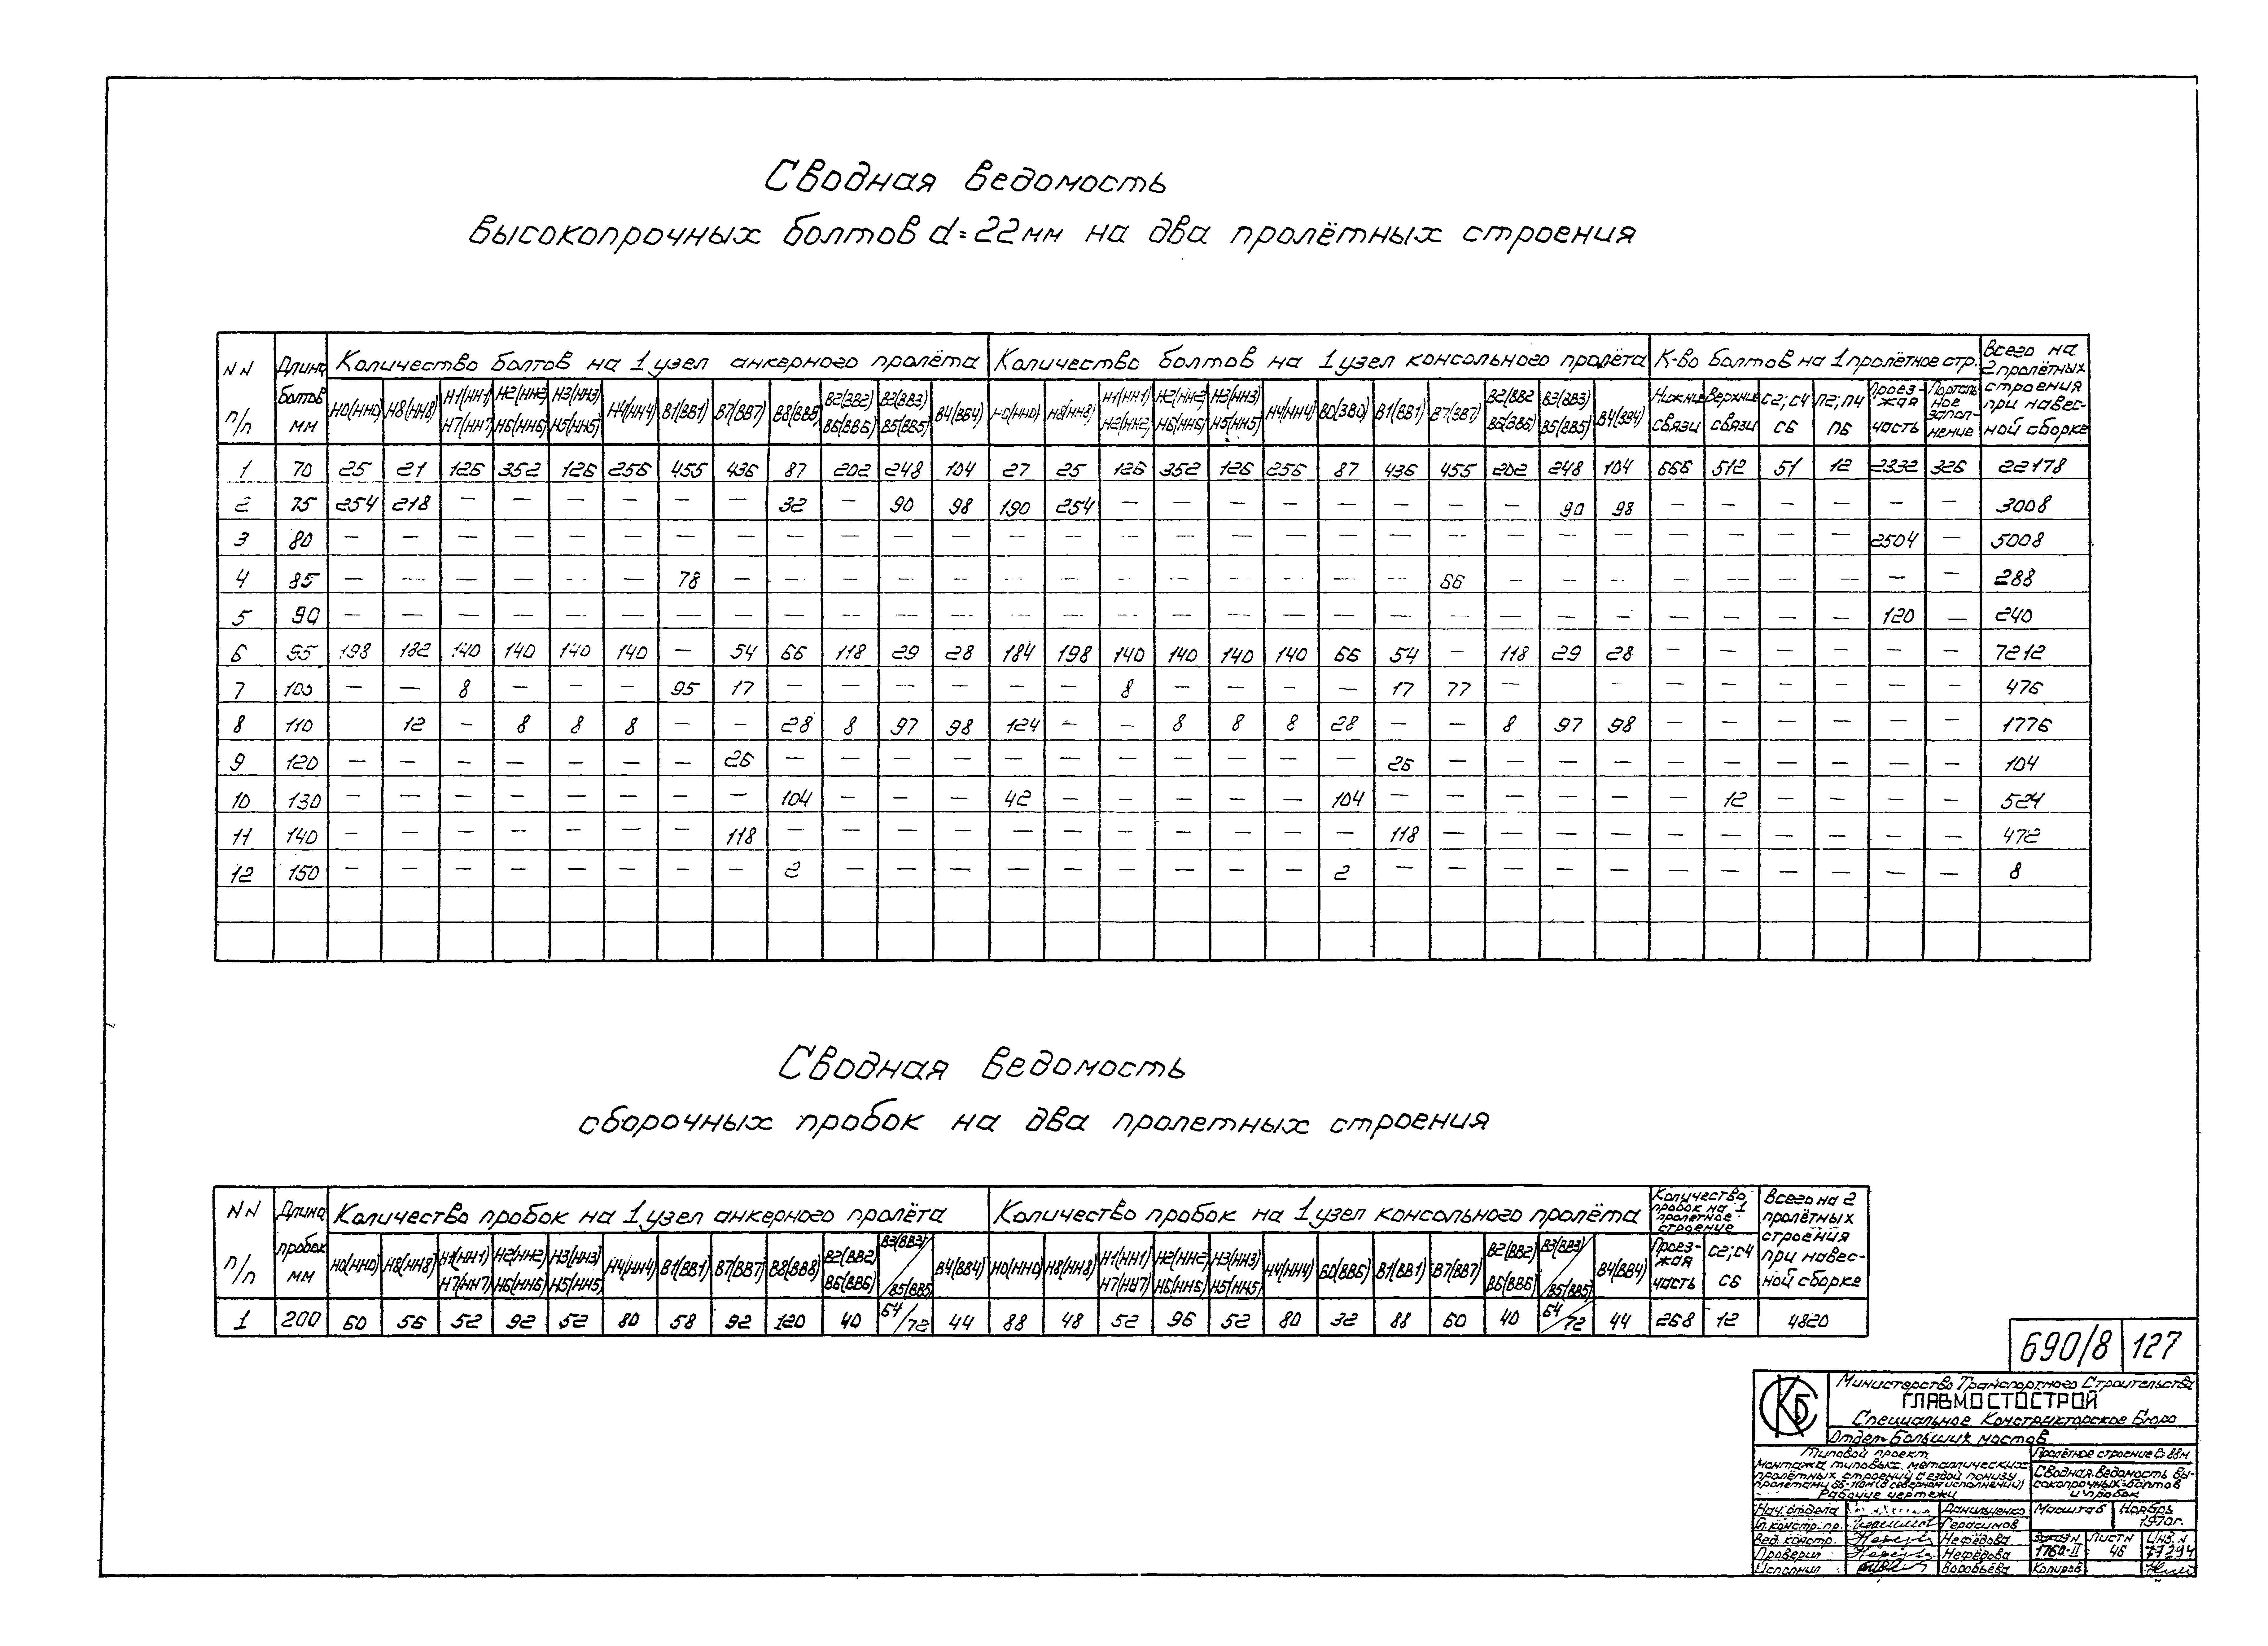 Сводная ведомость
высокопрочных болтов d=22мм на два пролётных строения
NN п/п | Длина болтов мм | Количество болтов на 1 узел анкерного пролёта | Количество болтов на 1 узел консольного пролёта | К-во болтов на 1 пролётное стр. | Всего на 2 пролётных строения при навесной сборке
Н0(НН0) | Н8(НН8) | Н1(НН1) Н7(НН7) | Н2(НН2) Н6(НН6) | Н3(НН3) Н5(НН5) | Н4(НН4) | В1(ВВ1) | В7(ВВ7) | В8(ВВ8) | В2(ВВ2) В6(ВВ6) | В3(ВВ3) В5(ВВ5) | В4(ВВ4) | Н0(НН0) | Н8(НН8) | Н1(НН1) Н2(НН2) | Н2(НН2) Н6(НН6) | Н3(НН3) Н5(НН5) | Н4(НН4) | В0(ВВ0) | В1(ВВ1) | В7(ВВ7) | В2(ВВ2 В6(ВВ6) | В3(ВВ3) В5(ВВ5) | В4(ВВ4) | Нижние связи | Верхние связи | С2; С4 С6 | П2; П4 П6 | Проезжая часть | Портальное заполнение
1 | 70 | 25 | 21 | 126 | 352 | 126 | 256 | 455 | 436 | 87 | 202 | 248 | 104 | 27 | 25 | 126 | 352 | 126 | 256 | 87 | 436 | 455 | 202 | 248 | 104 | 666 | 512 | 51 | 12 | 2332 | 326 | 22178
2 | 75 | 254 | 218 | — | — | — | — | — | — | 32 | — | 90 | 98 | 190 | 254 | — | — | — | — | — | — | — | — | 90 | 98 | — | — | — | — | — | — | 3008
3 | 80 | — | — | — | — | — | — | — | — | — | — | — | — | — | — | — | — | — | — | — | — | — | — | — | — | — | — | — | — | 2504 | — | 5008
4 | 85 | — | — | — | — | — | — | 78 | — | — | — | — | — | — | — | — | — | — | — | — | — | 66 | — | — | — | — | — | — | — | — | — | 288
5 | 90 | — | — | — | — | — | — | — | — | — | — | — | — | — | — | — | — | — | — | — | — | — | — | — | — | — | — | — | — | 120 | — | 240
6 | 95 | 198 | 182 | 140 | 140 | 140 | 140 | — | 54 | 66 | 118 | 29 | 28 | 184 | 198 | 140 | 140 | 140 | 140 | 66 | 54 | — | 118 | 29 | 28 | — | — | — | — | — | — | 7212
7 | 105 | — | — | 8 | — | — | — | 95 | 17 | — | — | — | — | — | — | 8 | — | — | — | — | 17 | 77 | — | — | — | — | — | — | — | — | — | 476
8 | 110 | | 12 | — | 8 | 8 | 8 | — | — | 28 | 8 | 97 | 98 | 124 | — | — | 8 | 8 | 8 | 28 | — | — | 8 | 97 | 98 | — | — | — | — | — | — | 1776
9 | 120 | — | — | — | — | — | — | — | 26 | — | — | — | — | — | — | — | — | — | — | — | 26 | — | — | — | — | — | — | — | — | — | — | 104
10 | 130 | — | — | — | — | — | — | — | — | 104 | — | — | — | 42 | — | — | — | — | — | 104 | — | — | — | — | — | — | 12 | — | — | — | — | 524
11 | 140 | — | — | — | — | — | — | — | 118 | — | — | — | — | — | — | — | — | — | — | — | 118 | — | — | — | — | — | — | — | — | — | — | 472
12 | 150 | — | — | — | — | — | — | — | — | 2 | — | — | — | — | — | — | — | — | — | 2 | — | — | — | — | — | — | — | — | — | — | — | 8
Сводная ведомость
сборочных пробок на два пролетных строения
NN п/п | Длина пробок мм | Количество пробок на 1 узел анкерного пролёта | Количество пробок на 1 узел консольного пролёта | Количество пробок на 1 пролетное строение | Всего на 2 пролётных строения при навесной сборке
Н0(НН0) | Н8(НН8) | Н1(НН1) Н7(НН7) | Н2(НН2) Н6(НН6) | Н3(НН3) Н5(НН5) | Н4(НН4) | В1(ВВ1) | В7(ВВ7) | В8(ВВ8) | В2(ВВ2) В6(ВВ6) | В3(ВВ3)/В5(ВВ5) | В4(ВВ4) | Н0(НН0) | Н8(НН8) | Н1(НН1) Н7(НН7) | Н2(НН2) Н6(НН6) | Н3(НН3) Н5(НН5) | Н4(НН4) | В0(ВВ6) | В1(ВВ1) | В7(ВВ7) | В2(ВВ2) В6(ВВ6) | В3(ВВ3)/В5(ВВ5) | В4(ВВ4) | Проезжая часть | С2; С4 С6
1 | 200 | 60 | 56 | 52 | 92 | 52 | 80 | 58 | 92 | 120 | 40 | 64/72 | 44 | 88 | 48 | 52 | 96 | 52 | 80 | 32 | 88 | 60 | 40 | 64/72 | 44 | 268 | 12 | 4820
690/8 | 127
СКБ
Министерство Транспортного Строительства
ГЛАВМОСТОСТРОЙ
Специальное Конструкторское Бюро
Отдел Больших мостов
Типовой проект
монтажа типовых металлических
пролётных строений с ездой понизу
пролетами 66-110м (в северном исполнении)
Рабочие чертежи
Пролётное строение ℓ=88м
Сводная ведомость высокопрочных болтов и пробок
Нач. отдела | Данильченко | Масштаб | Ноябрь 1970г.
Гл. констр. пр. | Герасимов
Вед. констр. | Нефёдова | Заказ N | Лист N | Инв. N
Проверил | Нефёдова | 1760-II | 46 | 77294
Исполнил | Воробьёва | Копиров.